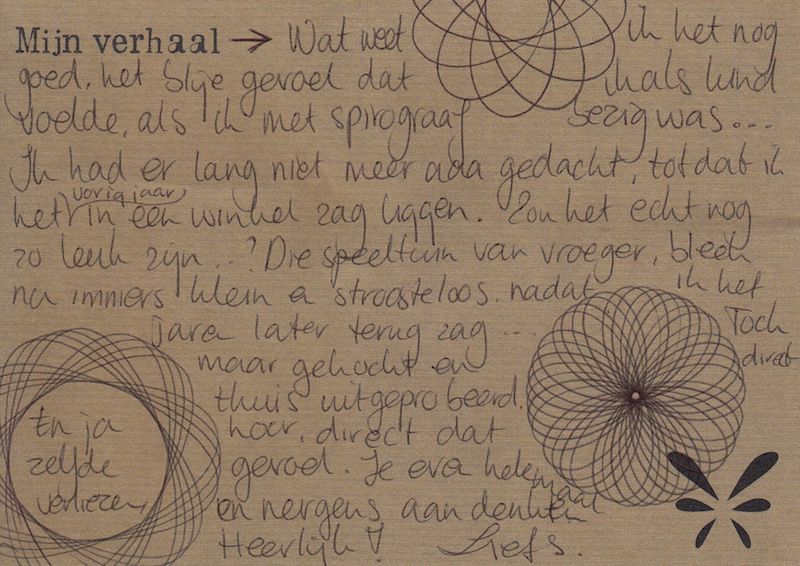 Mijn verhaal → Wat weet ik het nog
goed, het blije gevoel dat ik als kind
voelde, als ik met spirograaf bezig was...
Ik had er lang niet meer aan gedacht, totdat ik
het vorig jaar in een winkel zag liggen. Zou het echt nog
zo leuk zijn...? Die speeltuin van vroeger, bleek
nu immers klein en troosteloos. nadat ik het
jaren later terug zag.... Toch
maar gekocht en direct
thuis uitgeprobeerd.
En ja hoor, direct dat
zelfde gevoel. Je even helemaal
verliezen, en nergens aan denken
Heerlijk! Liefs.